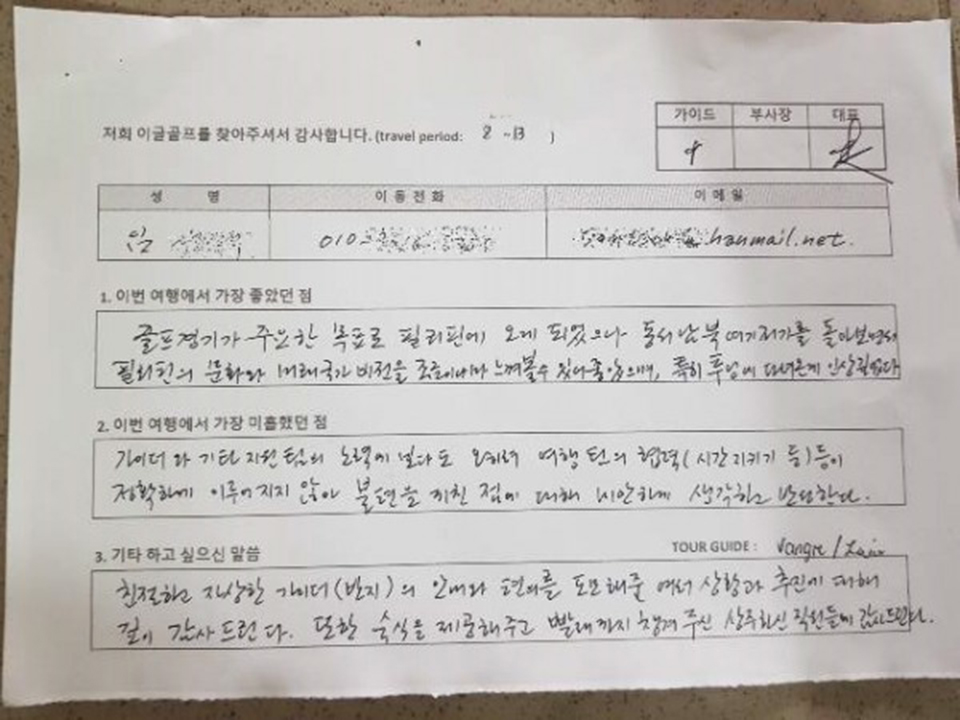 저희 이글골프를 찾아주셔서 감사합니다. (travel period: 8 ~13 )
가이드 부사장 대표
성 명 이 동 전 화 이 메 일
임 010- hanmail.net.
1. 이번 여행에서 가장 좋았던 점
골프경기가 주요한 목표로 필리핀에 오게 되었으나 동서남북 여기저기를 돌아보면서
필리핀의 문화와 미래국가 비전을 조금이나마 느껴볼수 있어 좋았으며, 특히 투어에 다녀온게 인상깊었다
2. 이번 여행에서 가장 미흡했던 점
가이더와 기타 지원팀의 노력에 오히려 여행 팀의 협력(시간지키기 등)등이
정확하게 이루어지지 않아 불편을 끼친 점에 대해 미안하게 생각하고 반성한다.
3. 기타 하고 싶으신 말씀 TOUR GUIDE :
친절하고 자상한 가이더(반지)의 안내와 편의를 도모해준 여러 상황과 추진에 대해
깊이 감사드린다. 또한 숙식을 제공해주고 빨래까지 챙겨 주신 상주하신 직원들께 감사드린다.